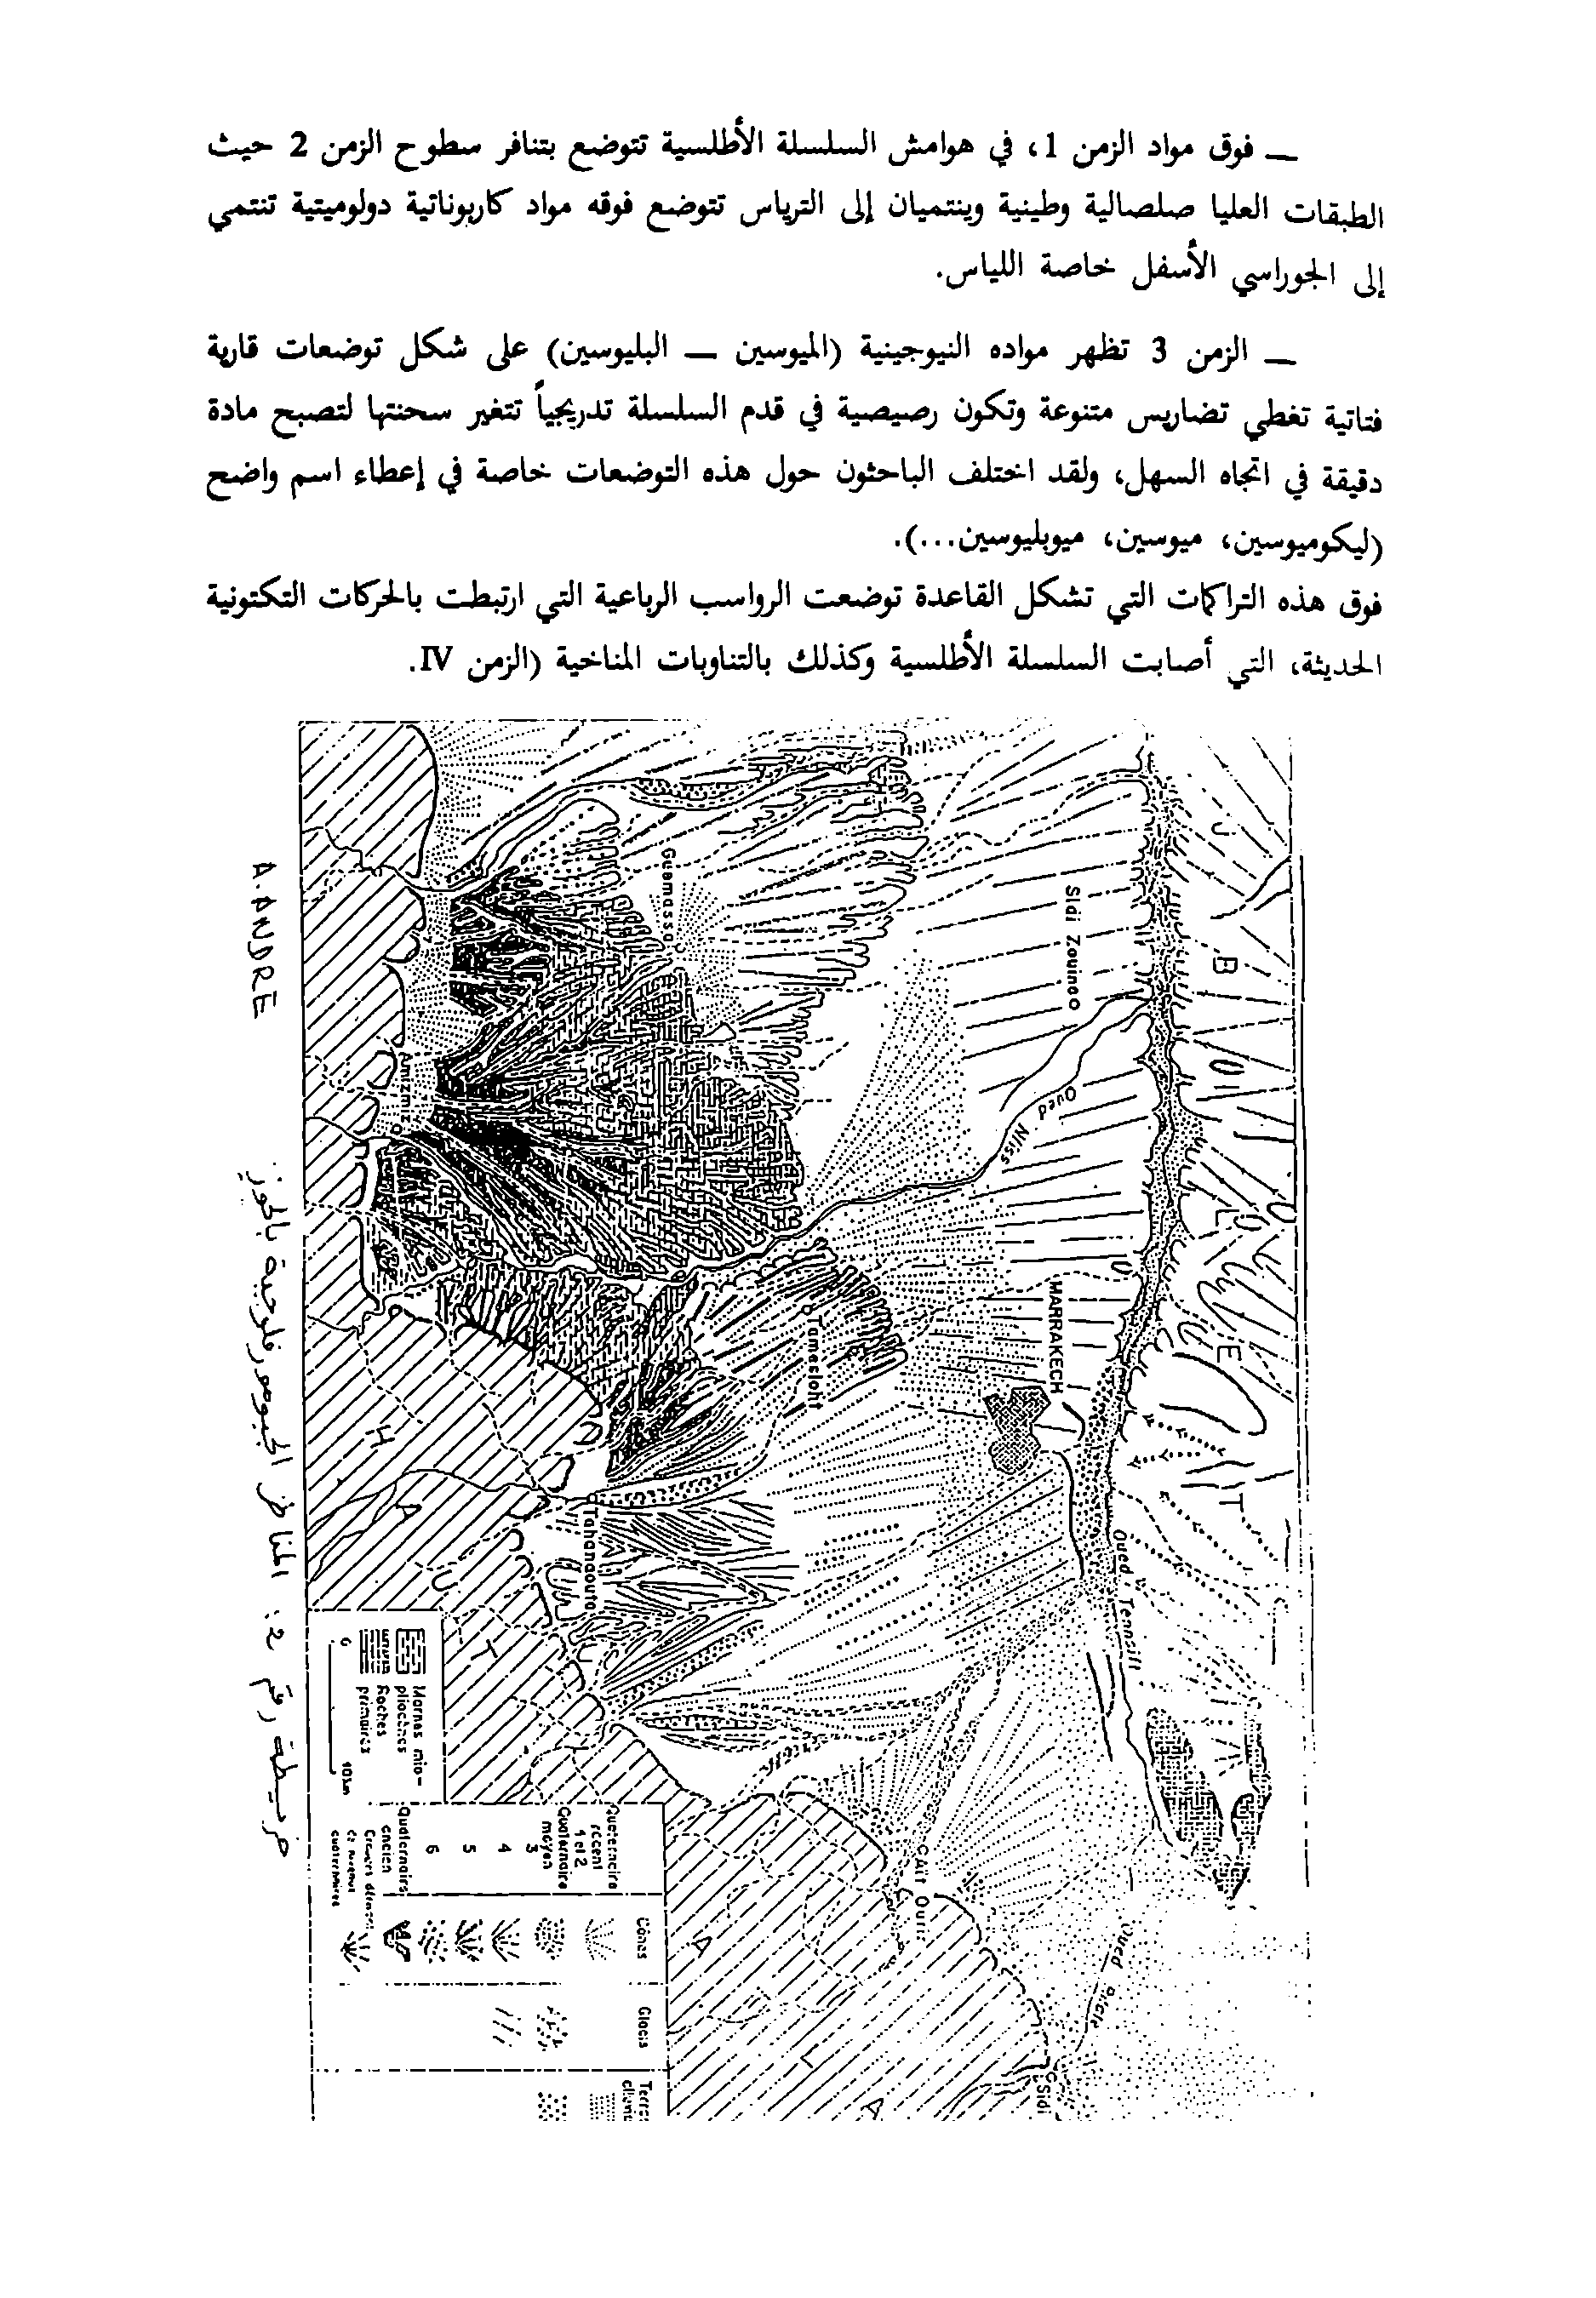 — فوق مواد الزمن 1، في هوامش السلسلة الأطلسية تتوضع بتنافر سطوح الزمن 2 حيث
الطبقات العليا صلصالية وطينية وينتميان إلى الترياس تتوضع فوقه مواد كاربوناتية دولوميتية تنتمي
إلى الجوراسي الأسفل خاصة اللياس.
— الزمن 3 تظهر مواده النيوجينية (الميوسين — البليوسين) على شكل توضعات قارية
فتاتية تغطي تضاريس متنوعة وتكون رصيصية في قدم السلسلة تدريجياً تتغير سحنتها لتصبح مادة
دقيقة في اتجاه السهل، ولقد اختلف الباحثون حول هذه التوضعات خاصة في إعطاء اسم واضح
(ليكوميوسين، ميوسين، ميوبليوسين...).
فوق هذه التراكمات التي تشكل القاعدة توضعت الرواسب الرباعية التي ارتبطت بالحركات التكتونية
الحديثة، التي أصابت السلسلة الأطلسية وكذلك بالتناوبات المناخية (الزمن IV.
J B
Guemassa
Sidi Zouine
Oued Nfiss
Amizmiz
MARRAKECH
Tamesloht
Tahanaout
Oued Tensift
Ait Ourir
Sidi
H A U T
A T L A
Marnes mio-
pliocènes
Roches
primaires
0 10km
Quaternaire
récent
1 et 2
Quaternaire
moyen
3
4
5
6
Quaternaire
ancien
quaternaires
Cônes
Glacis
خريطة رقم 2: المناظر الجيومورفلوجية بالحوز
A. ANDRE